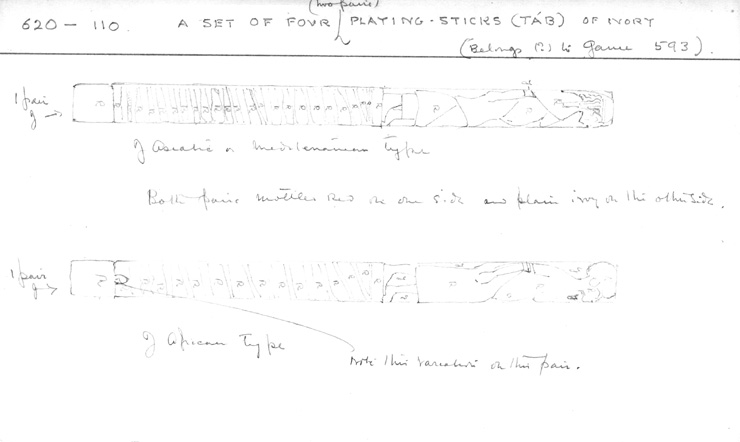 (two pairs)
620 - 110. A SET OF FOUR PLAYING-STICKS (TÁB) OF IVORY
(Belongs (?) to Game 593).
1 pair
of →
of Asiatic or Mediterranean type
Both pairs mottled red on one side and plain ivory on the other side.
1 pair
of →
of African type
Note this variation on this pair.